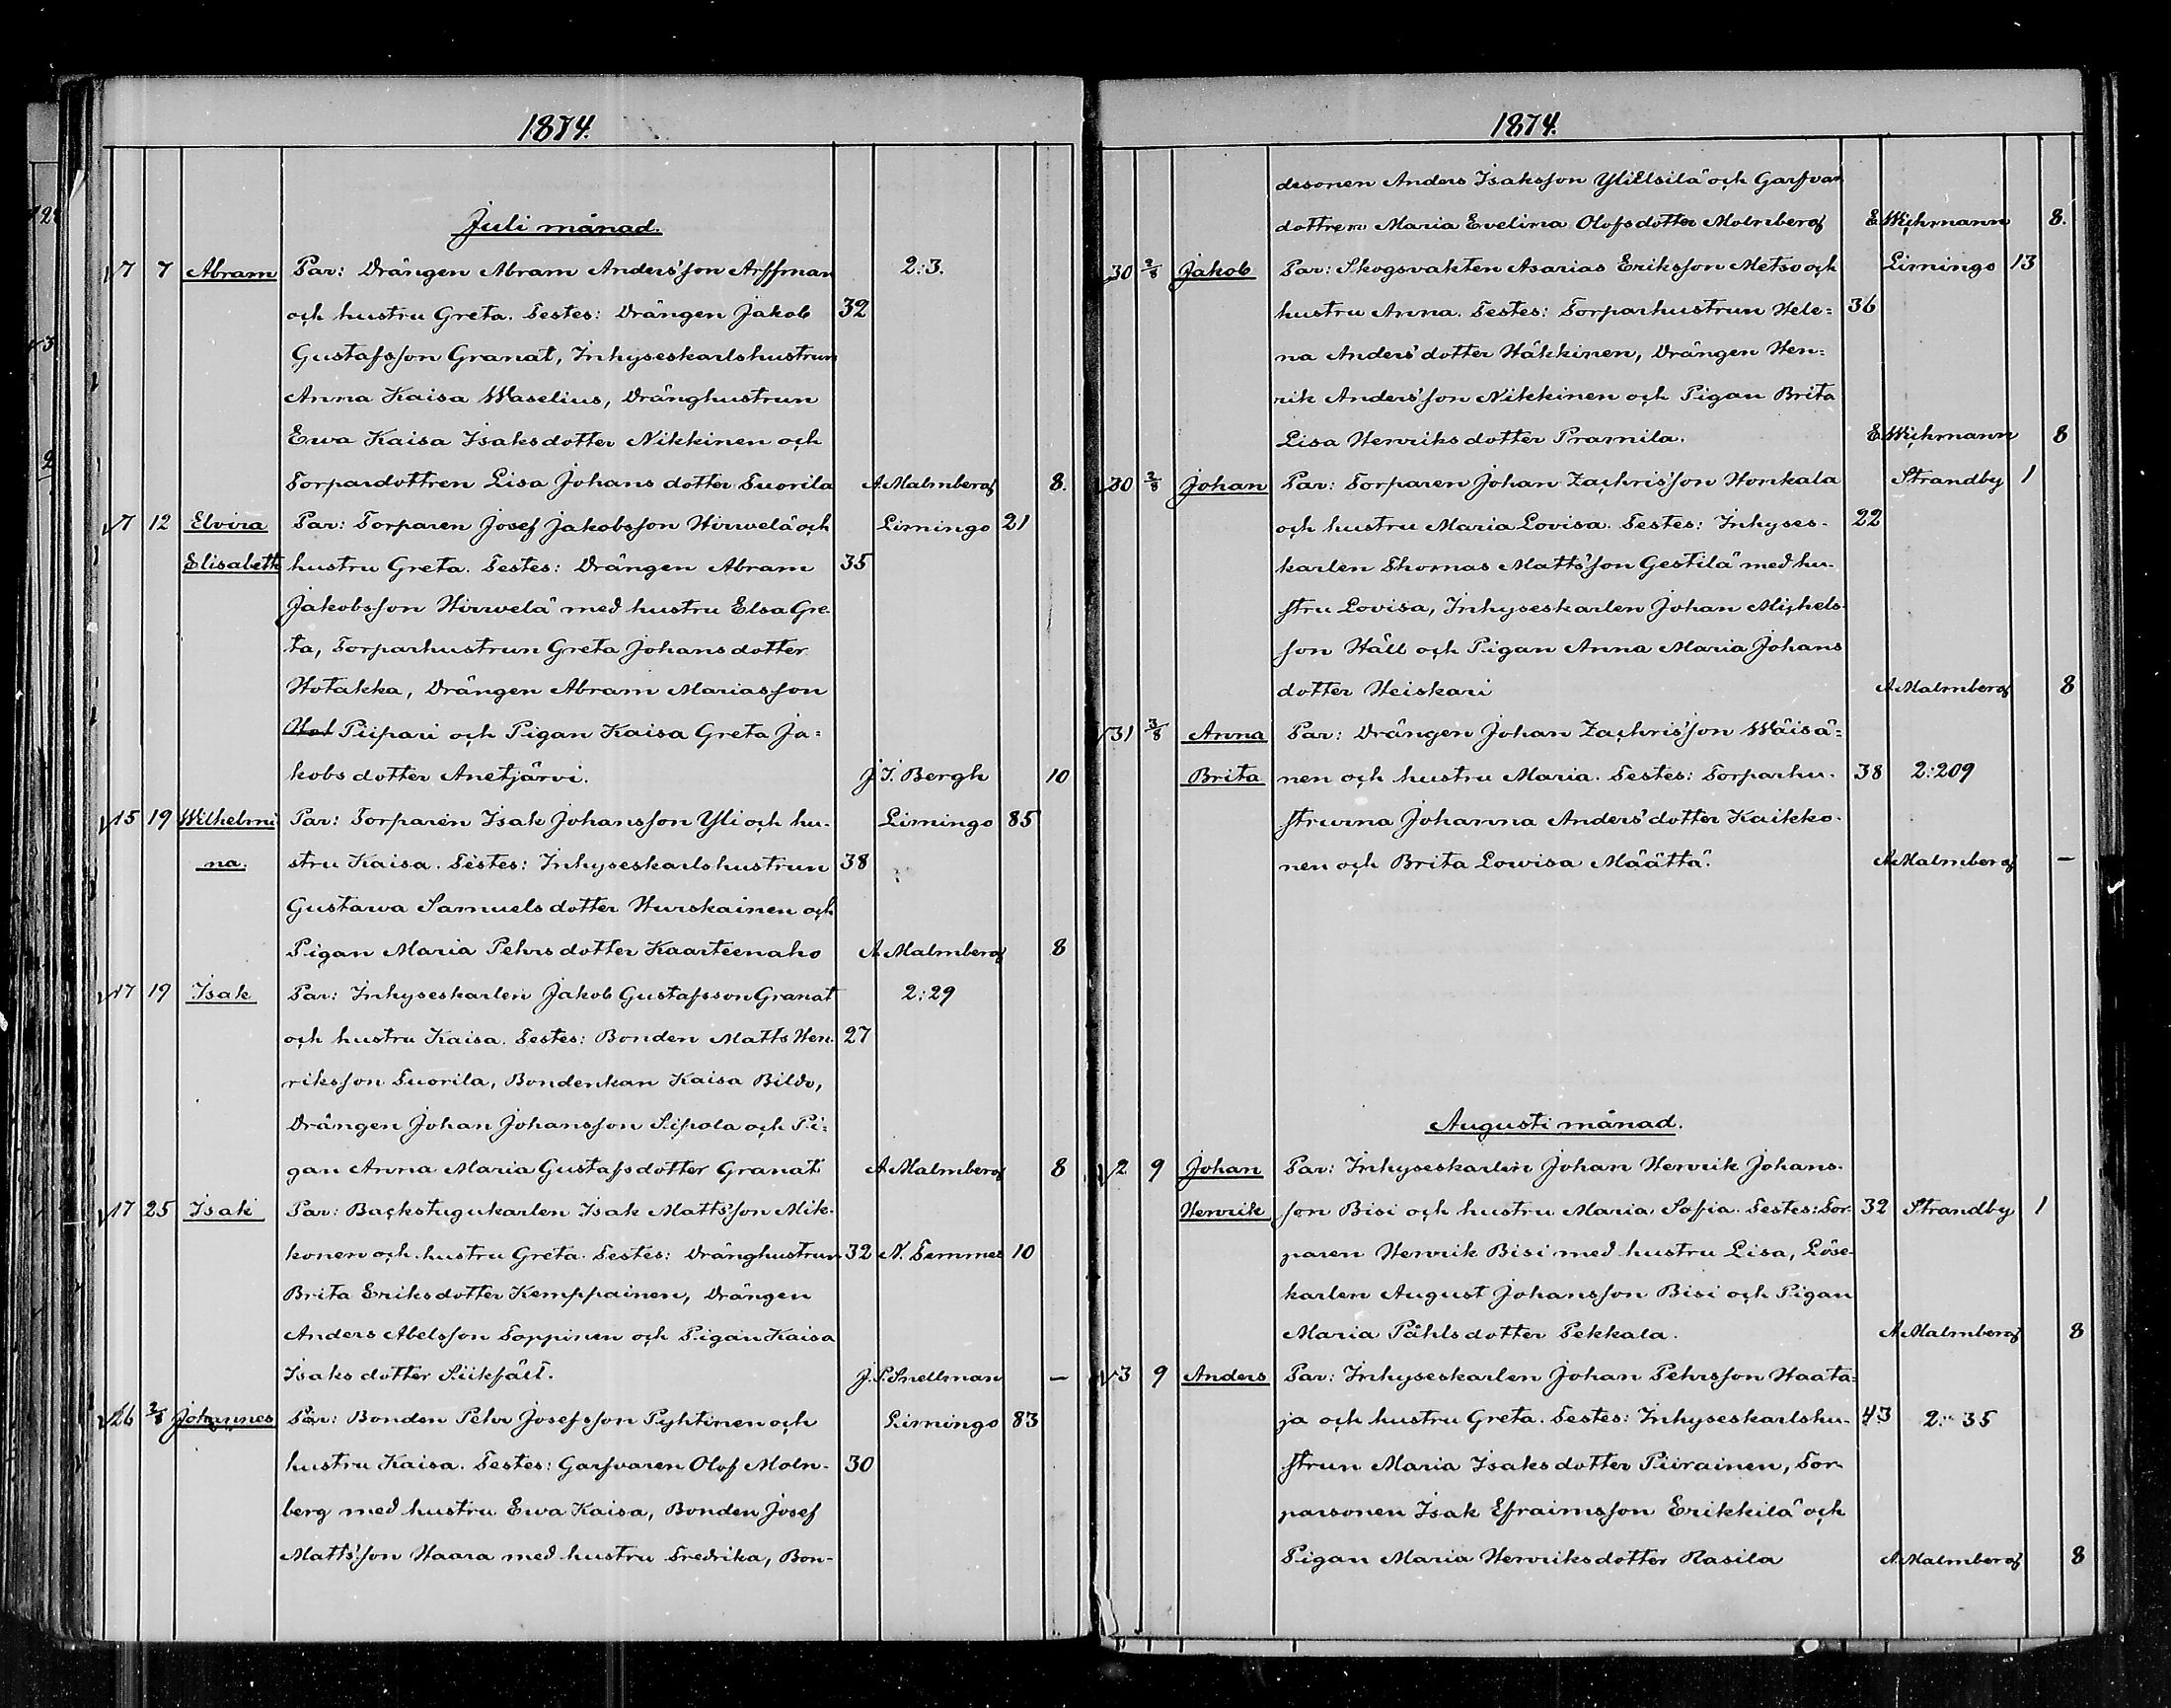 1874.
Juli månad.
7 7 Abram Par: Drängen Abram Anders'son Arffman 2:3.
och hustru Greta. Testes: Drängen Jakob 32
Gustafsson Granat, Inhyseskarlshustrun
Anna Kaisa Waselius, Dränghustrun
Ewa Kaisa Isaksdotter Nikkinen och
Torpardottren Lisa Johans dotter Tuorila A. Malmberg 8.
7 12 Elvira Par: Torparen Josef Jakobsson Hirwelä och Limingo 21
Elisabeth hustru Greta. Testes: Drängen Abram 35
Jakobsson Hirwelä med hustru Elsa Gre-
ta, Torparhustrun Greta Johansdotter
Hotakka, Drängen Abram Mariasson
Hot Piipari och Pigan Kaisa Greta Ja=
kobs dotter Anetjärvi. J. I. Bergh 10
15 19 Wilhelmi Par: Torparen Isak Johansson Yli och hu- Limingo 85
na. stru Kaisa. Testes: Inhyseskarlshustrun 38
Gustawa Samuelsdotter Hurskainen och
Pigan Maria Pehrsdotter Kaarteenaho A. Malmberg 8
17 19 Isak Par: Inhyseskarlen Jakob Gustafsson Granat 2:29
och hustru Kaisa. Testes: Bonden Matts Hen- 27
riksson Tuorila, Bondenkan Kaisa Bildo,
Drängen Johan Johansson Sipola och Pi=
gan Anna Maria Gustafsdotter Granat A. Malmberg 8
17 25 Isak Par: Backstugukarlen Isak Matts'son Mik-
konen och hustru Greta. Testes: Dränghustrun 32 N. Temmes 10
Brita Eriksdotter Kemppainen, Drängen
Anders Abelsson Toppinen och Pigan Kaisa
Isaks dotter Siikfält. J. P. Snellman —
26 2/8 Johannes Par: Bonden Pehr Josefsson Pyhtinen och Limingo 83
hustru Kaisa. Testes: Garfvaren Olof Moln- 30
berg med hustru Ewa Kaisa, Bonden Josef
Matts'son Haara med hustru Fredrika, Bon-
1874.
desonen Anders Isaksson YliElsilä och Garfvar
dottren Maria Evelina Olofsdotter Molnberg E Wichmann 8.
30 2/8 Jakob Par: Skogsvakten Asarias Eriksson Metso och Limingo 13
hustru Anna. Testes: Torparhustrun Hele= 36
na Anders'dotter Häkkinen, Drängen Hen=
rik Anders'son Nikkinen och Pigan Brita
Lisa Henriksdotter Pramila. E Wichmann 8
30 2/8 Johan Par: Torparen Johan Zachris'son Honkala Strandby 1
och hustru Maria Lovisa. Testes: Inhyses- 22
karlen Thomas Matts'son Gestilä med hu-
stru Lovisa, Inhyseskarlen Johan Michels-
son Häll och Pigan Anna Maria Johans
dotter Heiskari A. Malmberg 8
31 3/8 Anna Par: Drängen Johan Zachris'son Wäisä=
Brita nen och hustru Maria. Testes: Torparhu- 38 2:209
strurna Johanna Anders'dotter Kaikko-
nen och Brita Lowisa Määttä. A. Malmberg —
Augusti månad.
2 9 Johan Par: Inhyseskarlen Johan Henrik Johans-
Henrik son Bisi och hustru Maria Sofia. Testes: Tor- 32 Strandby 1
paren Henrik Bisi med hustru Lisa, Löse-
karlen August Johansson Bisi och Pigan
Maria Påhlsdotter Pekkala. A. Malmberg 8
3 9 Anders Par: Inhyseskarlen Johan Pehrsson Haata=
ja och hustru Greta. Testes: Inhyseskarlshu- 43 2:35
strun Maria Isaksdotter Piirainen, Tor-
parsonen Isak Efraimsson Erikkilä och
Pigan Maria Henriksdotter Rasila A. Malmberg 8